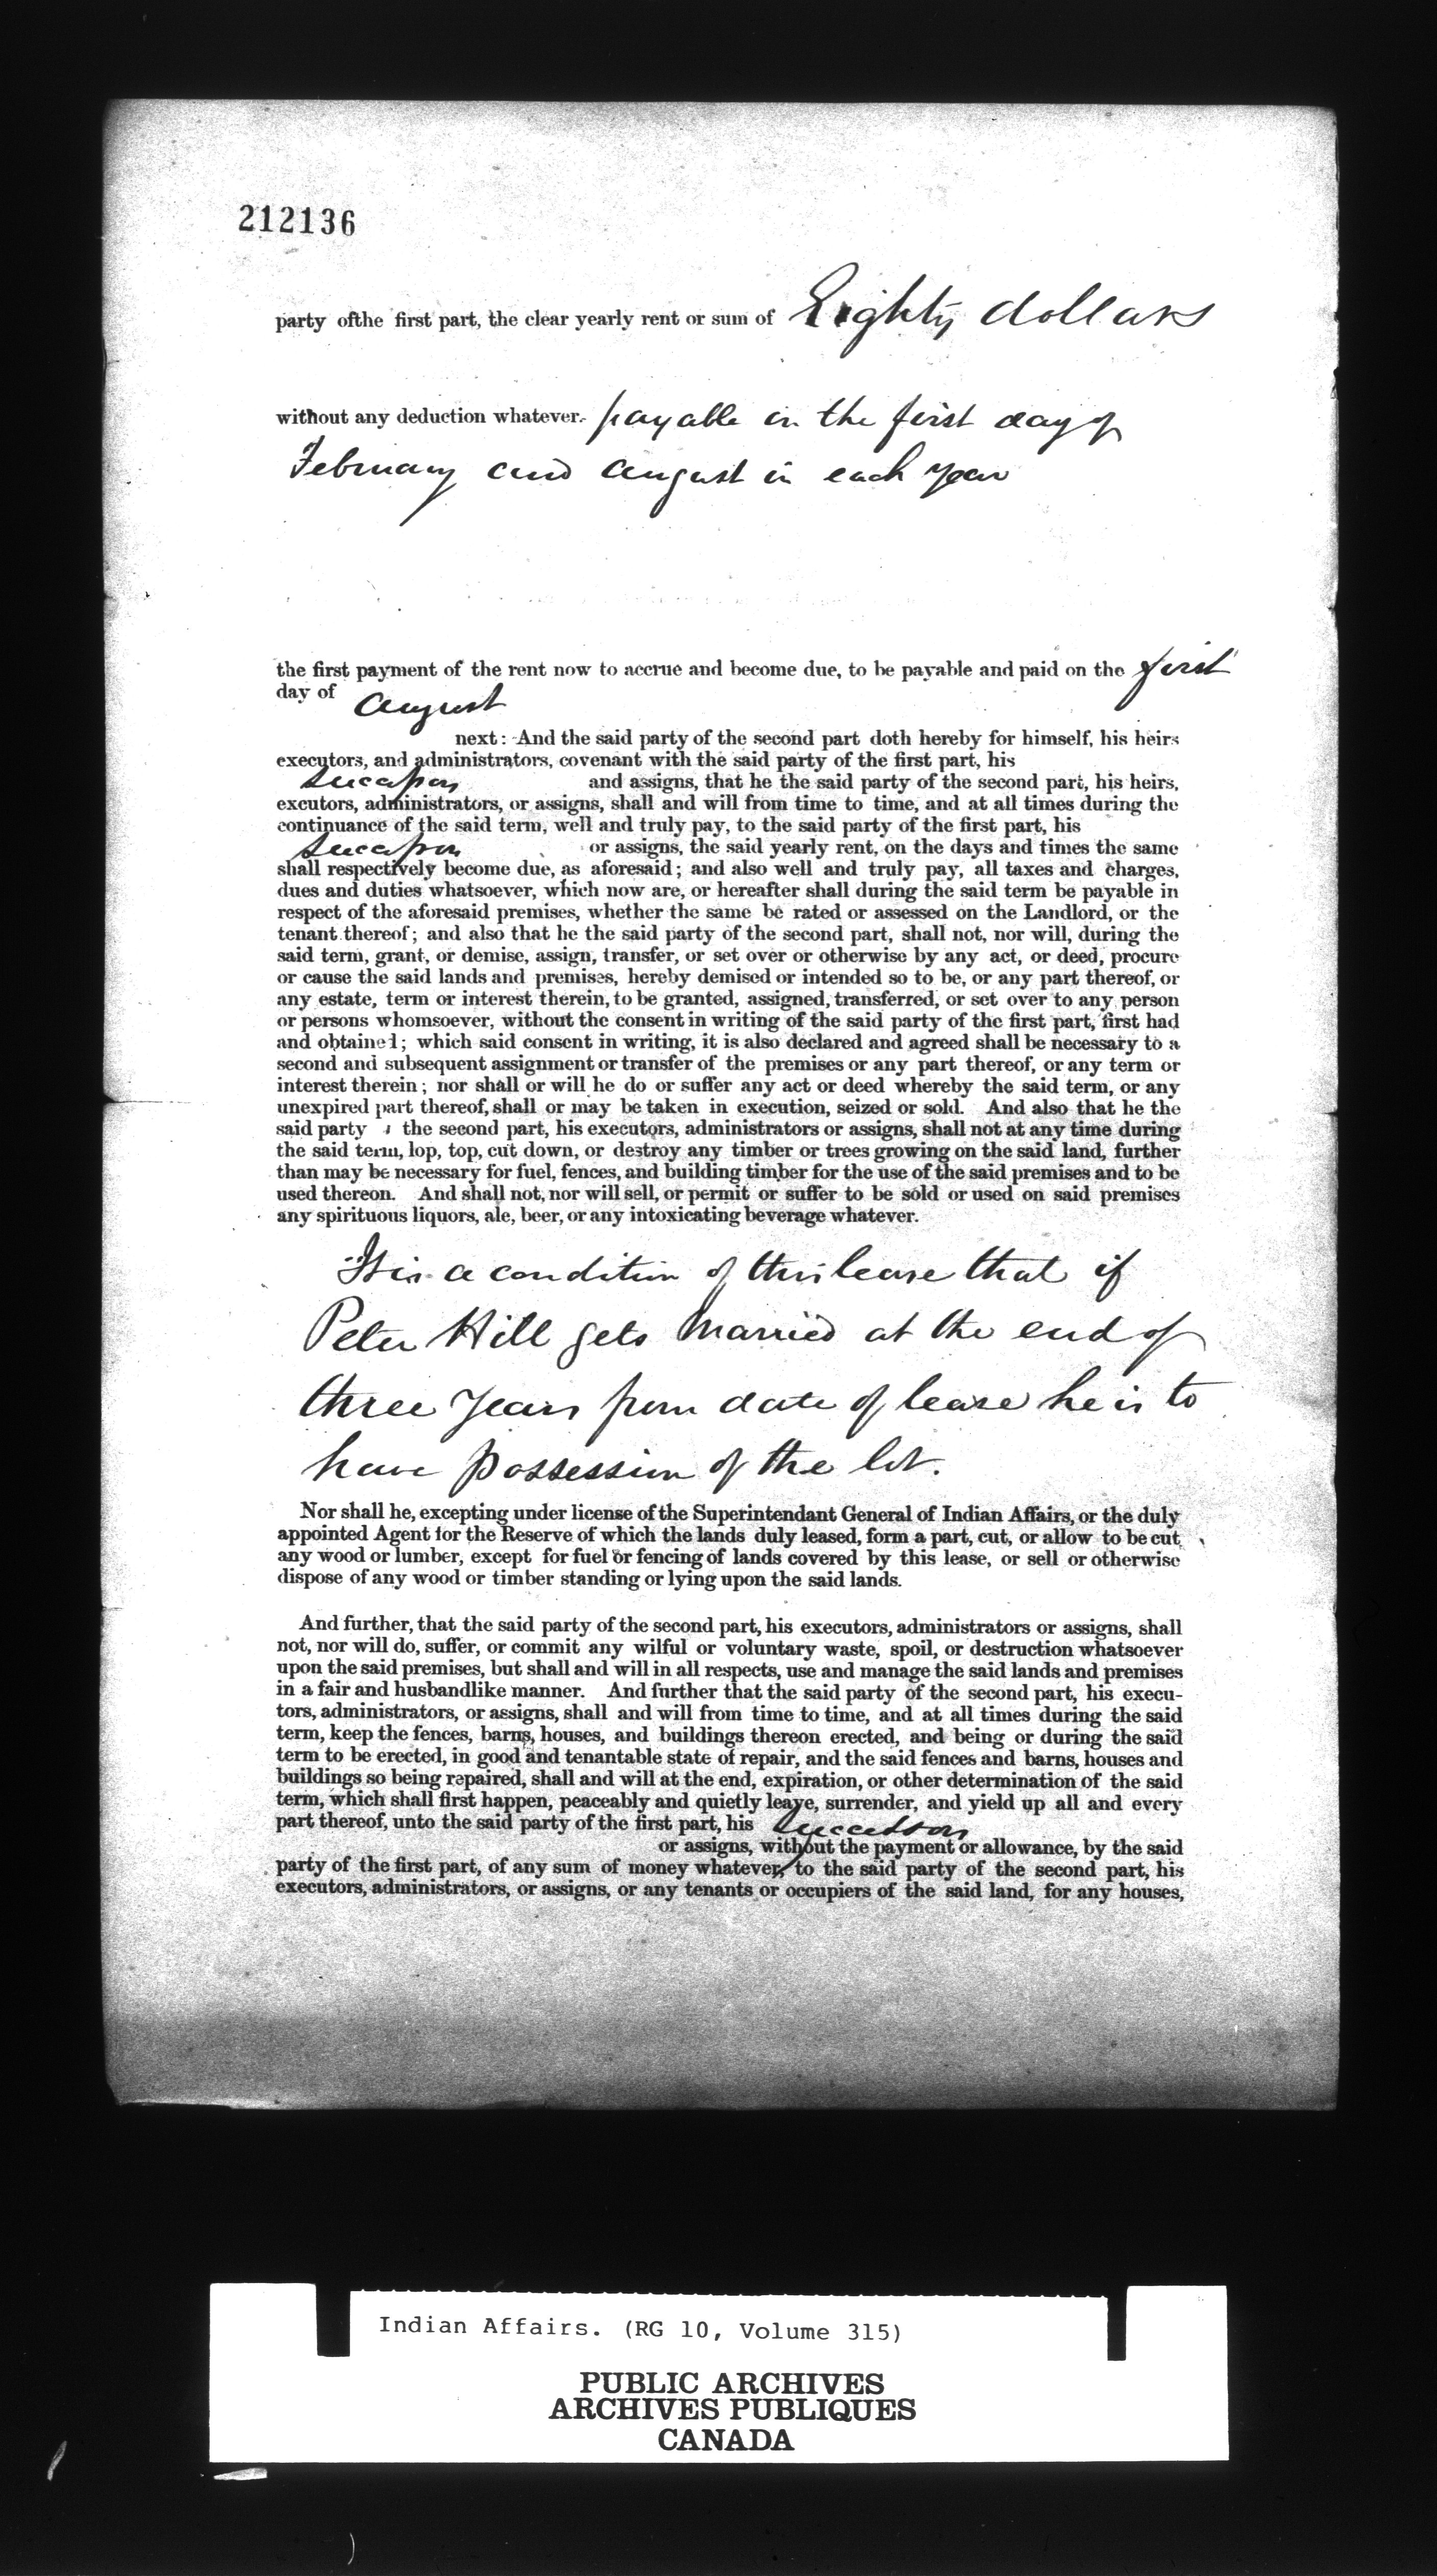 212136
party ofthe first part, the clear yearly rent or sum of Eighty dollars
without any deduction whatever. payable in the first day of
February and August in each year
the first payment of the rent now to accrue and become due, to be payable and paid on the first
day of August
next: And the said party of the second part doth hereby for himself, his heirs
executors, and administrators, covenant with the said party of the first part, his
Successors and assigns, that he the said party of the second part, his heirs,
excutors, administrators, or assigns, shall and will from time to time, and at all times during the
continuance of the said term, well and truly pay, to the said party of the first part, his
Successors or assigns, the said yearly rent, on the days and times the same
shall respectively become due, as aforesaid; and also well and truly pay, all taxes and charges,
dues and duties whatsoever, which now are, or hereafter shall during the said term be payable in
respect of the aforesaid premises, whether the same be rated or assessed on the Landlord, or the
tenant thereof; and also that he the said party of the second part, shall not, nor will, during the
said term, grant, or demise, assign, transfer, or set over or otherwise by any act, or deed, procure
or cause the said lands and premises, hereby demised or intended so to be, or any part thereof, or
any estate, term or interest therein, to be granted, assigned, transferred, or set over to any person
or persons whomsoever, without the consent in writing of the said party of the first part, first had
and obtained; which said consent in writing, it is also declared and agreed shall be necessary to a
second and subsequent assignment or transfer of the premises or any part thereof, or any term or
interest therein; nor shall or will he do or suffer any act or deed whereby the said term, or any
unexpired part thereof, shall or may be taken in execution, seized or sold. And also that he the
said party the second part, his executors, administrators or assigns, shall not at any time during
the said term, lop, top, cut down, or destroy any timber or trees growing on the said land, further
than may be necessary for fuel, fences, and building timber for the use of the said premises and to be
used thereon. And shall not, nor will sell, or permit or suffer to be sold or used on said premises
any spirituous liquors, ale, beer, or any intoxicating beverage whatever.
It is a condition of this lease that if
Peter Hill gets married at the end of
three years from date of lease he is to
have possession of the lot.
Nor shall he, excepting under license of the Superintendant General of Indian Affairs, or the duly
appointed Agent for the Reserve of which the lands duly leased, form a part, cut, or allow to be cut
any wood or lumber, except for fuel or fencing of lands covered by this lease, or sell or otherwise
dispose of any wood or timber standing or lying upon the said lands.
And further, that the said party of the second part, his executors, administrators or assigns, shall
not, nor will do, suffer, or commit any wilful or voluntary waste, spoil, or destruction whatsoever
upon the said premises, but shall and will in all respects, use and manage the said lands and premises
in a fair and husbandlike manner. And further that the said party of the second part, his execu-
tors, administrators, or assigns, shall and will from time to time, and at all times during the said
term, keep the fences, barns, houses, and buildings thereon erected, and being or during the said
term to be erected, in good and tenantable state of repair, and the said fences and barns, houses and
buildings so being repaired, shall and will at the end, expiration, or other determination of the said
term, which shall first happen, peaceably and quietly leave, surrender, and yield up all and every
part thereof, unto the said party of the first part, his Successors
or assigns, without the payment or allowance, by the said
party of the first part, of any sum of money whatever, to the said party of the second part, his
executors, administrators, or assigns, or any tenants or occupiers of the said land, for any houses,
Indian Affairs. (RG 10, Volume 315)
PUBLIC ARCHIVES
ARCHIVES PUBLIQUES
CANADA